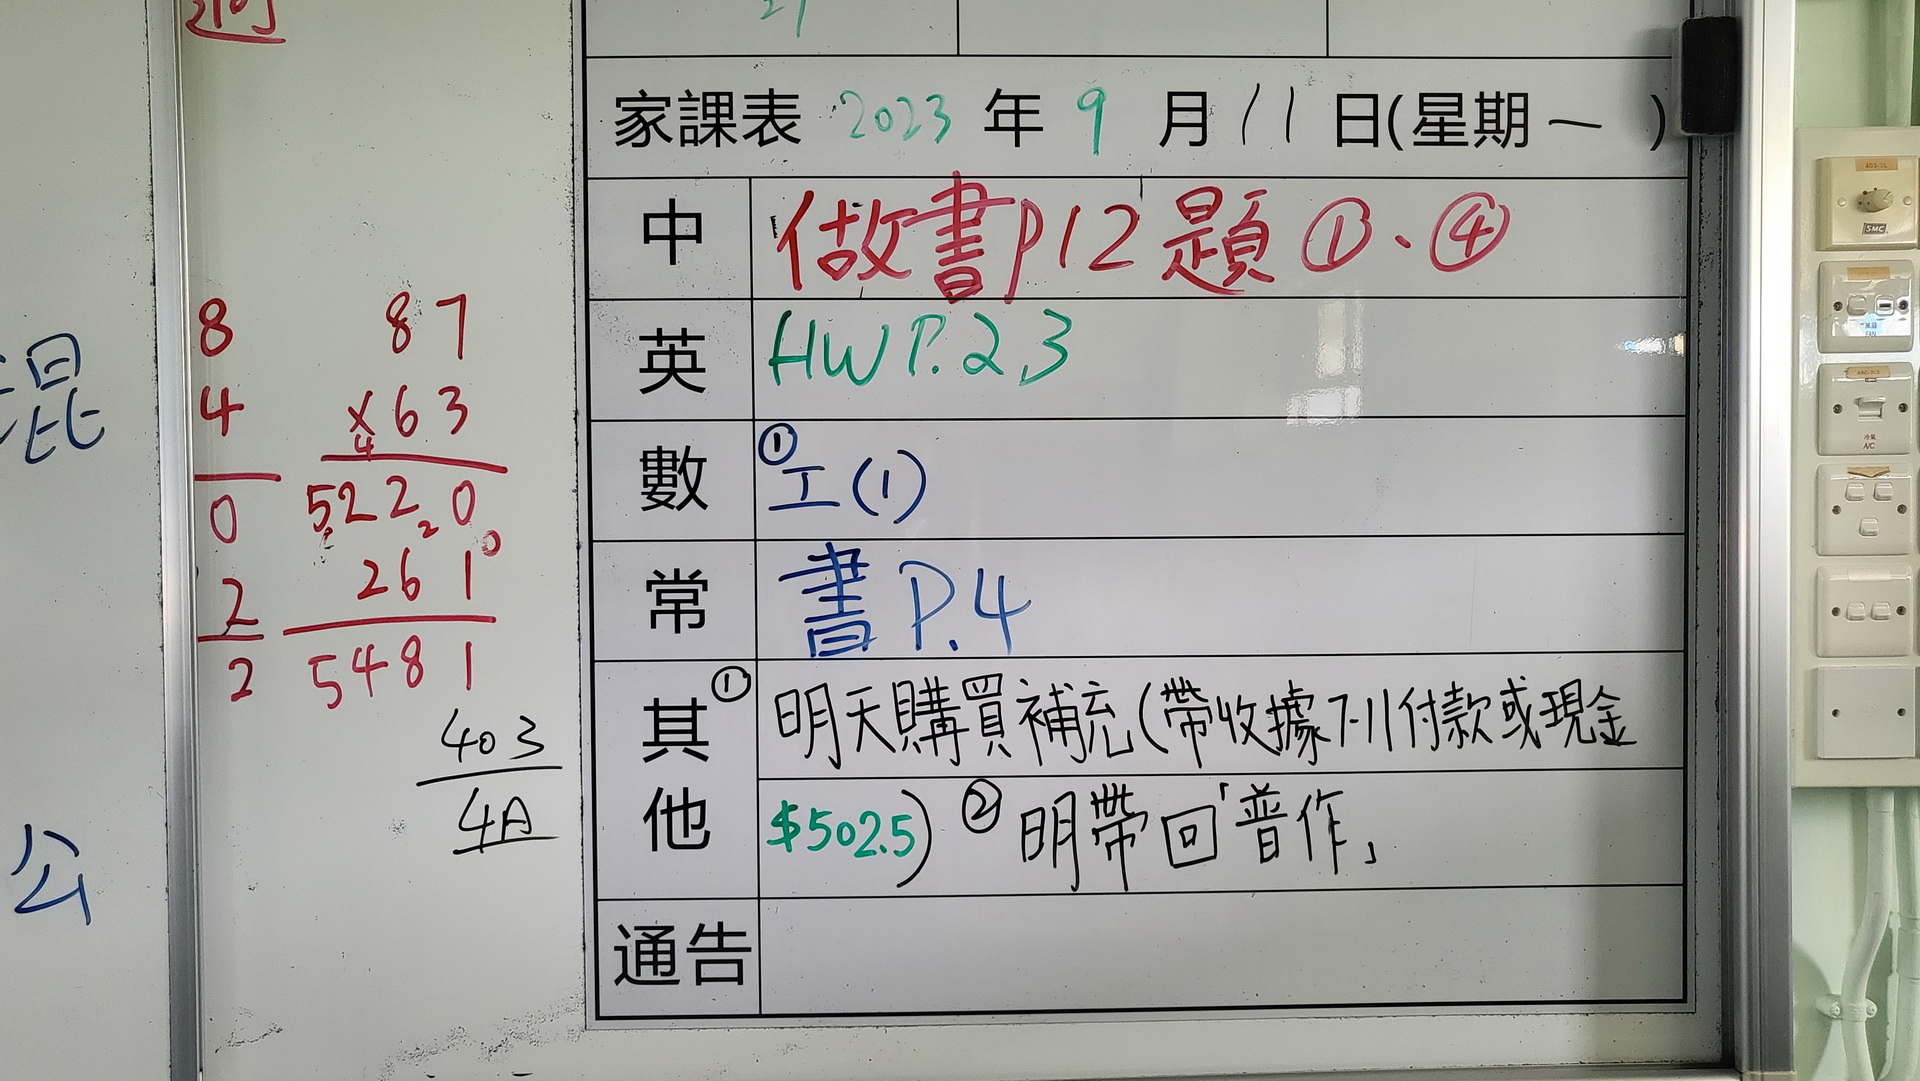 家課表 2023 年 9 月 11 日(星期一 )
中 做書P12題①、④
英 HW P.2,3
數 ①工(1)
常 書 P.4
其他 ①明天購買補充(帶收據7-11付款或現金
$502.5) ②明帶回「普作」
通告
8
4
0
2
2
87
x63
4
5220
2
261
0
5481
403
4A
混
公
SMC
風扇
FAN
冷氣
A/C